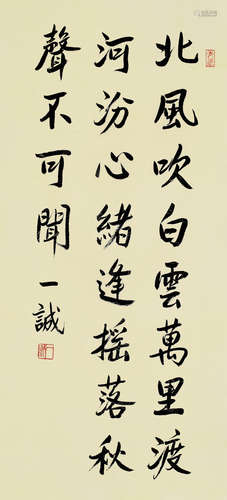 北風吹白雲萬里渡
河汾心緒逢摇落秋
聲不可聞一誠